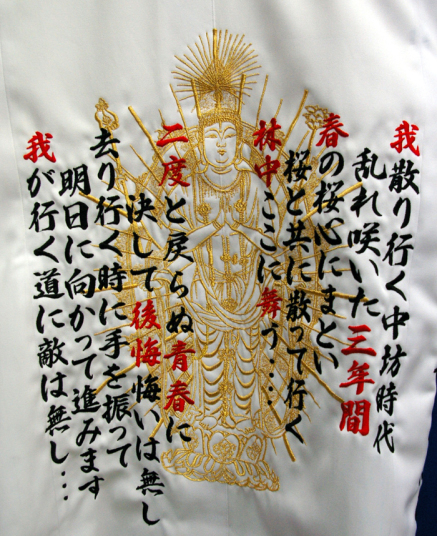 我散り行く中坊時代
乱れ咲いた三年間
春の桜心にまとい
桜と共に散って行く
林中ここに舞う…
二度と戻らぬ青春に
決して後悔悔いは無し
去り行く時に手を振って
明日に向かって進みます
我が行く道に敵は無し…